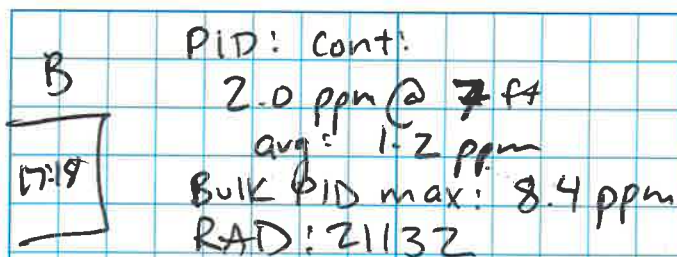 PID: Cont:
B
2.0 ppm @ 7 ft
avg: 1.2 ppm
17:18
Bulk PID max: 8.4 ppm
RAD: 21132